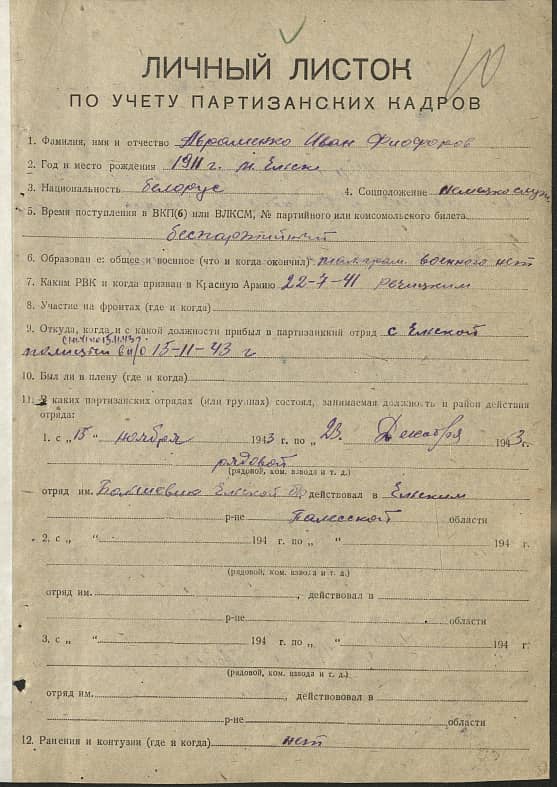 10
ЛИЧНЫЙ ЛИСТОК
ПО УЧЕТУ ПАРТИЗАНСКИХ КАДРОВ
1. Фамилия, имя и отчество Авраменко Иван Фиодоров
2. Год и место рождения 1911 г. м. Ельск
3. Национальность белорус 4. Соцположение
5. Время поступления в ВКП(б) или ВЛКСМ, № партийного или комсомольского билета
беспартийный
6. Образован е: общее и военное (что и когда окончил) военного нет
7. Каким РВК и когда призван в Красную Армию 22-7-41 Речицким
8. Участие на фронтах (где и когда)
9. Откуда, когда и с какой должности прибыл в партизанкий отряд с Ельской
полиции в п/о 15-11-43 г
10. Был ли в плену (где и когда)
11. В каких партизанских отрядах (или группах) состоял, занимаемая должность и район действия
отряда:
1. с „ 15 “ ноября 1943 г. по „ 23 “ Декабря 1943 г.
рядовой
(рядовой, ком. взвода и т. д.)
отряд им. Большевик Ельской действовал в Ельским
р-не Полесской области
2. с „ “ 194 г. по „ “ 194 г.
(рядовой, ком. взвода и т. д.)
отряд им. , действовал в
р-не области
3, с „ “ 194 г. по „ “ 194 г.
(рядовой, ком. взвода и т. д.)
отряд им. , действововал в
р-не области
12. Ранения и контузии (где и когда) нет